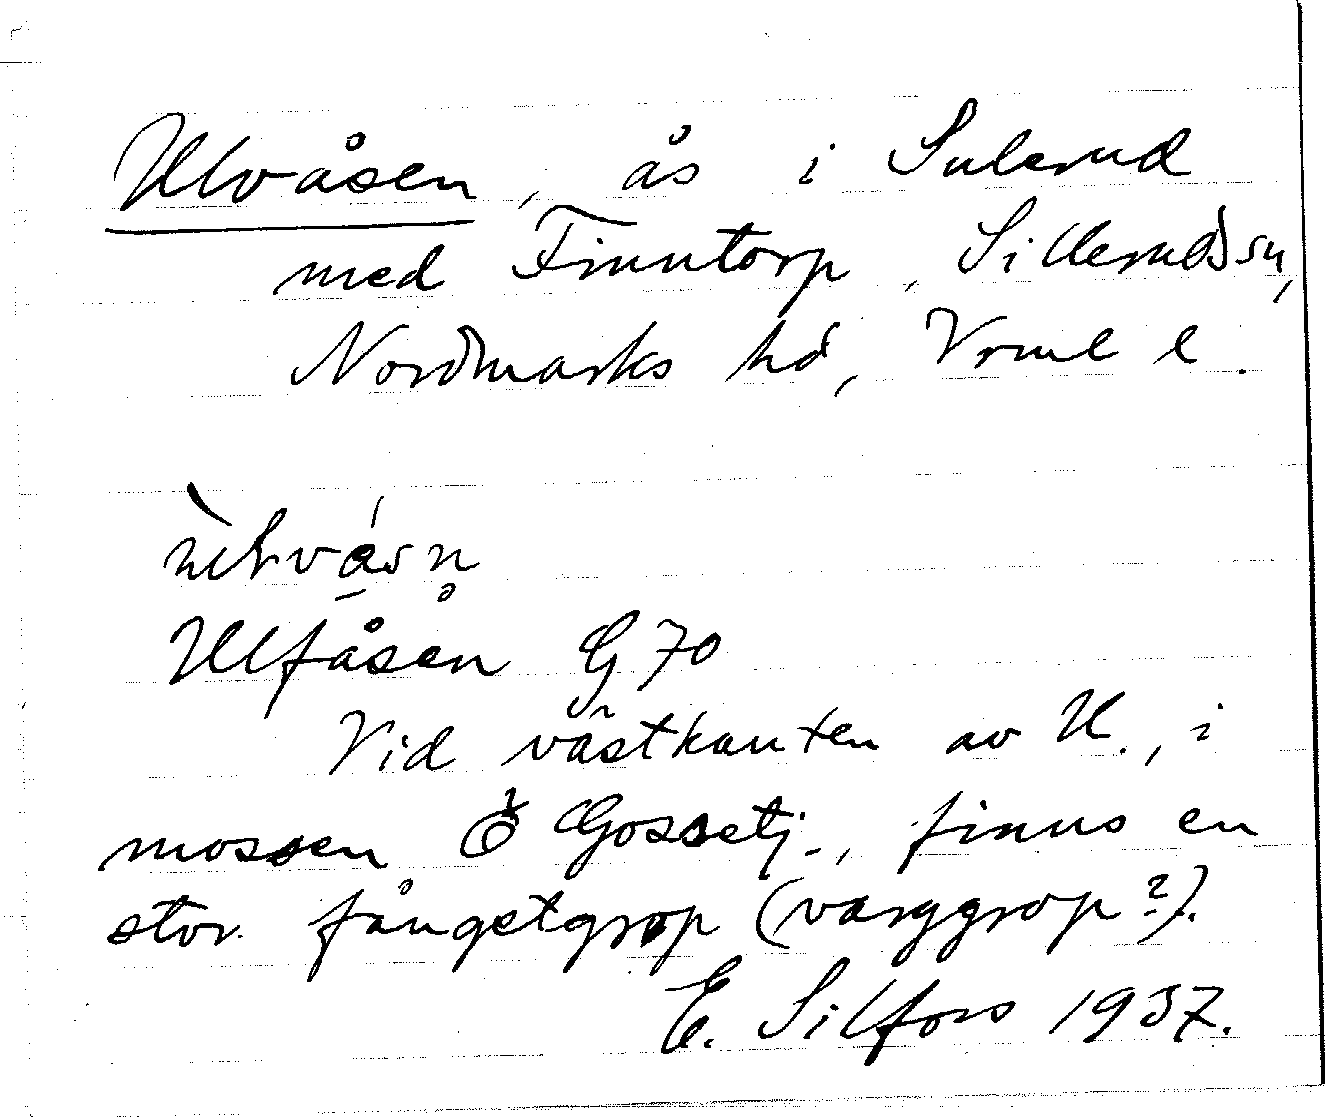 Ulvåsen, ås i Sulerud
med Finntorp, Sillerudssn,
Nordmarks hd, Vrml l.
Ulfåsen G 70
Vid västkanten av U., i
mossen Ö Gossetj., finns en
stor fångstgrop (varggrop?).
E. Silfors 1937.